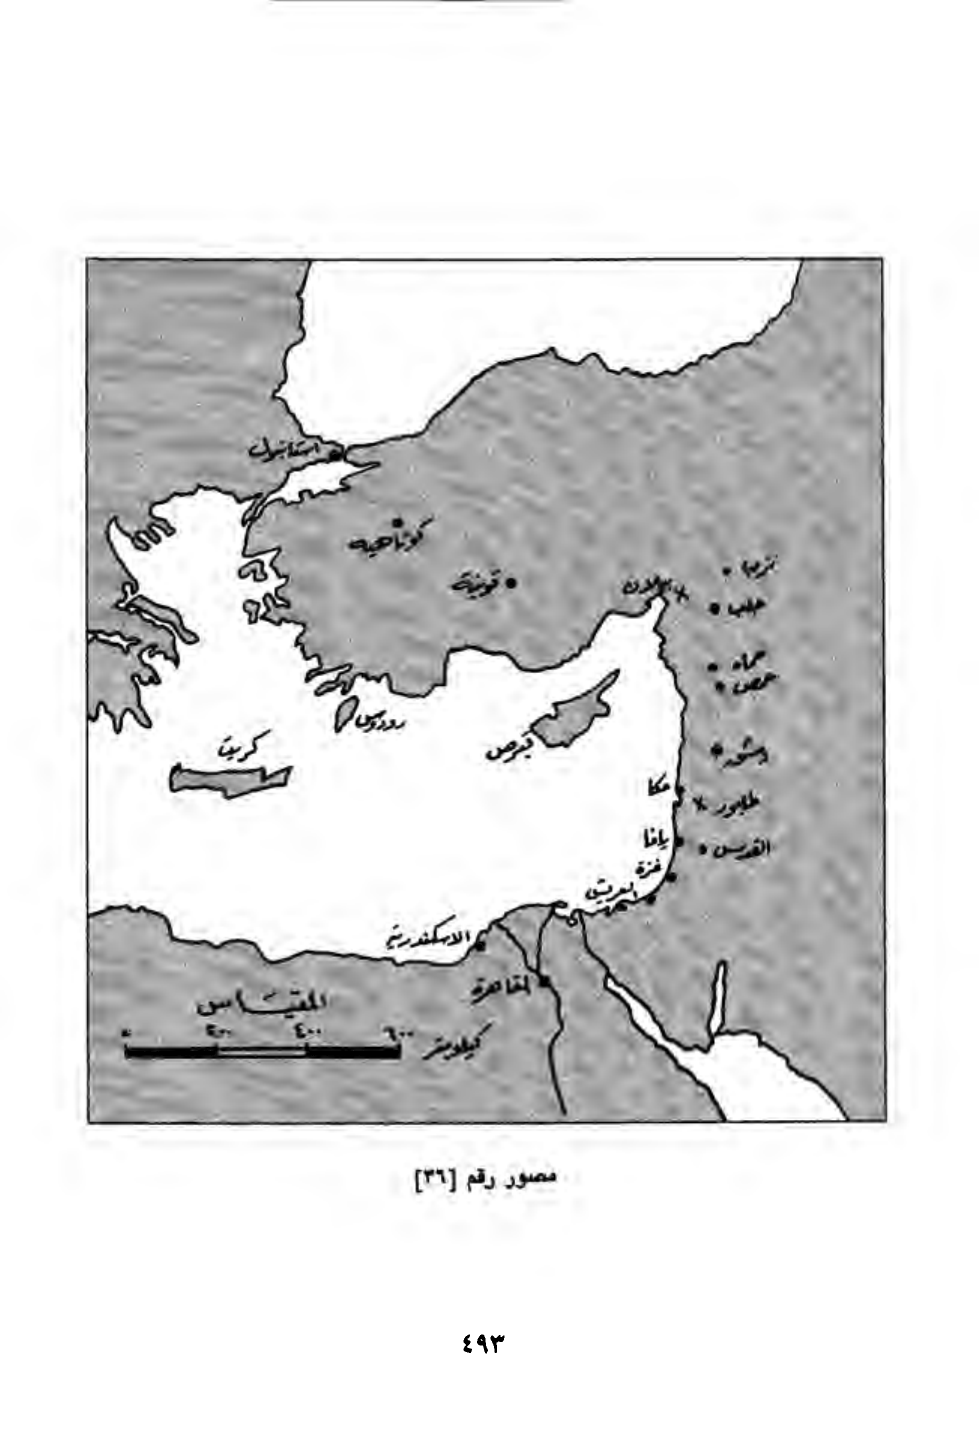 استانبول
كوتاهيه
قونية
بيلان
نزيب
حلب
حماه
حمص
رودوس
قبرص
كريت
دمشق
عكا
طابور
يافا
القدس
غزة
العريش
الاسكندرية
القاهرة
المقياس
٠ ٢٠٠ ٤٠٠ ٦٠٠ كيلومتر
مصور رقم [٣٦]
٤٩٣